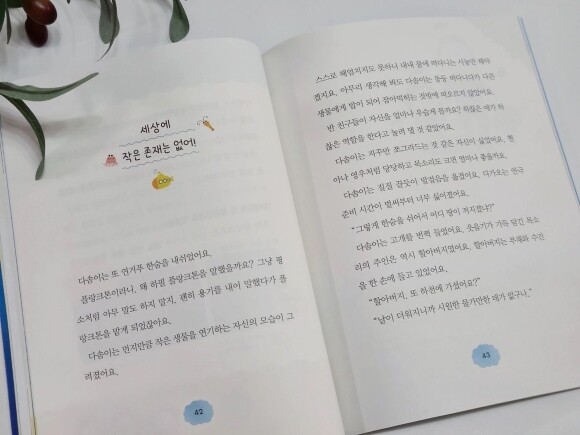 세상에
작은 존재는 없어!
다솜이는 또 연거푸 한숨을 내쉬었어요.
플랑크톤이라니, 왜 하필 플랑크톤을 말했을까요? 그냥 평
소처럼 아무 말도 하지 말지. 괜히 용기를 내어 말했다가 플
랑크톤을 맡게 되었잖아요.
다솜이는 먼지만큼 작은 생물을 연기하는 자신의 모습이 그
려졌어요.
42
스스로 헤엄치지도 못하니 내내 물에 떠다니는 시늉만 해야
겠지요. 아무리 생각해 봐도 다솜이는 둥둥 떠다니다가 다른
생물에게 밥이 되어 잡아먹히는 것밖에 떠오르지 않았어요.
반 친구들이 자신을 얼마나 우습게 볼까요? 하찮은 애가 하
찮은 역할을 한다고 놀려 댈 것 같았어요.
다솜이는 자꾸만 쪼그라드는 것 같은 자신이 싫었어요. 찐
아나 영우처럼 당당하고 목소리도 크면 얼마나 좋을까요.
다솜이는 질질 끌듯이 발걸음을 옮겼어요. 다가오는 연극
준비 시간이 벌써부터 너무 싫어졌어요.
“그렇게 한숨을 쉬어서 어디 땅이 꺼지겠냐?”
다솜이는 고개를 번쩍 들었어요. 웃음기가 가득 담긴 목소
리의 주인은 역시 할아버지였어요. 할아버지는 부채와 수건
을 한 손에 들고 있었어요.
“할아버지, 또 하천에 가셨어요?”
“날이 더워지니까 시원한 물가만한 데가 없구나.”
43